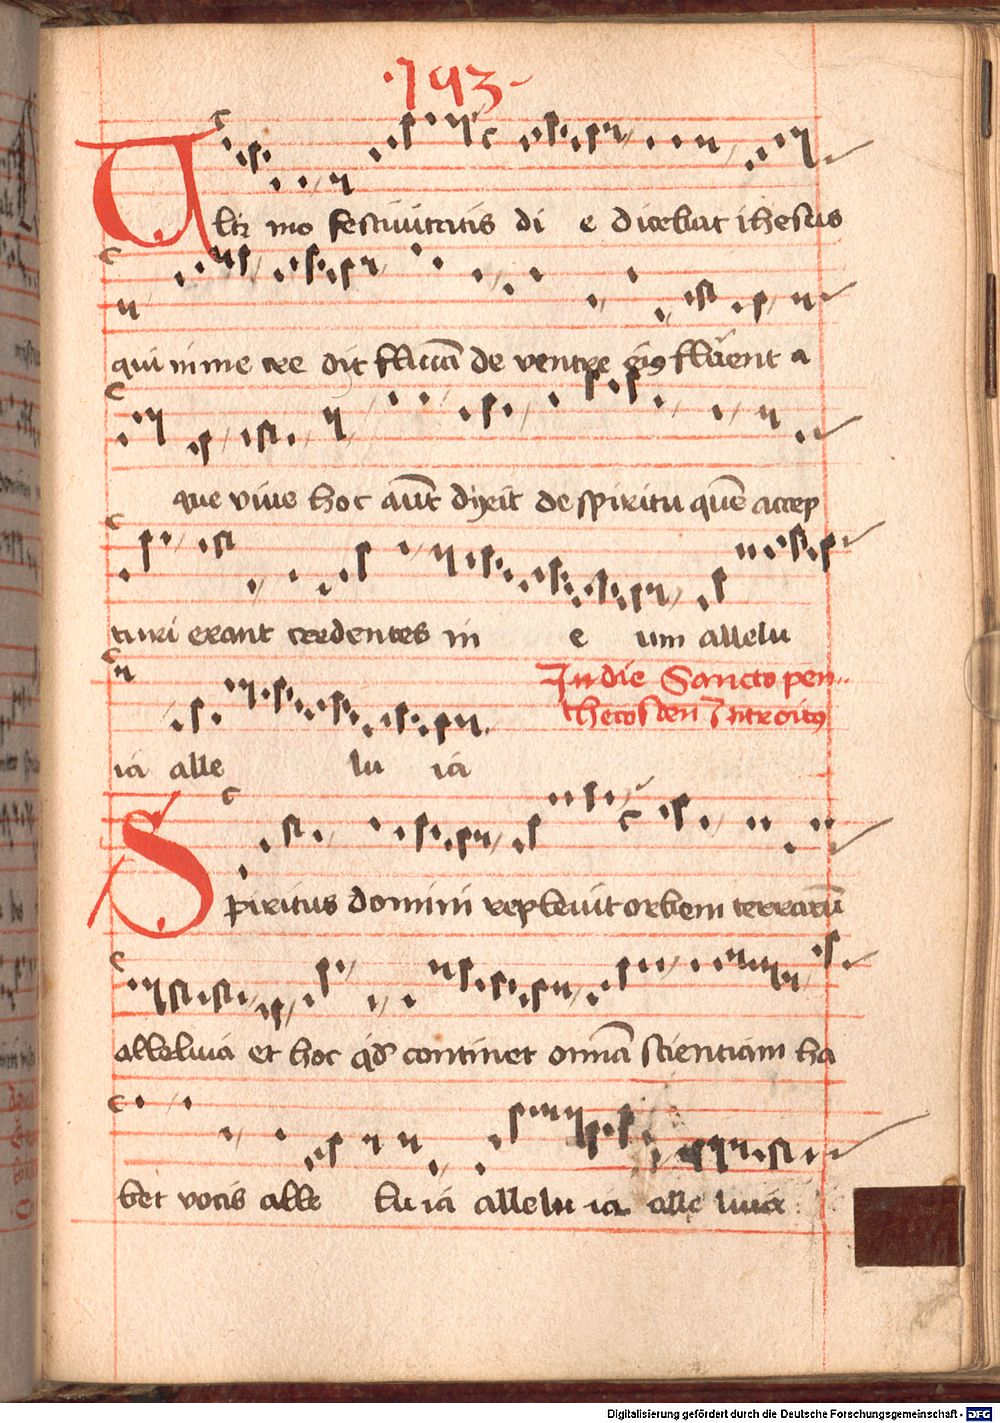 ·193·
Ulti mo festiuitatis di e dicebat ihesus
qui in me cre dit flumi̅a de ventre eiꝯ fluent a
que viue hoc au̅t dixit de spiritu que̅ accep
turi erant credentes in e um allelu
ia alle lu ia
In die Sancto pen..
thecosten Introitꝯ
Spiritus domini repleuit orbem terraru̅
alleluia et hoc qd̓ continet omia̅ scientiam ha
bet vocis alle lu ia allelu ia alle luia
Digitalisierung gefördert durch die Deutsche Forschungsgemeinschaft - DFG